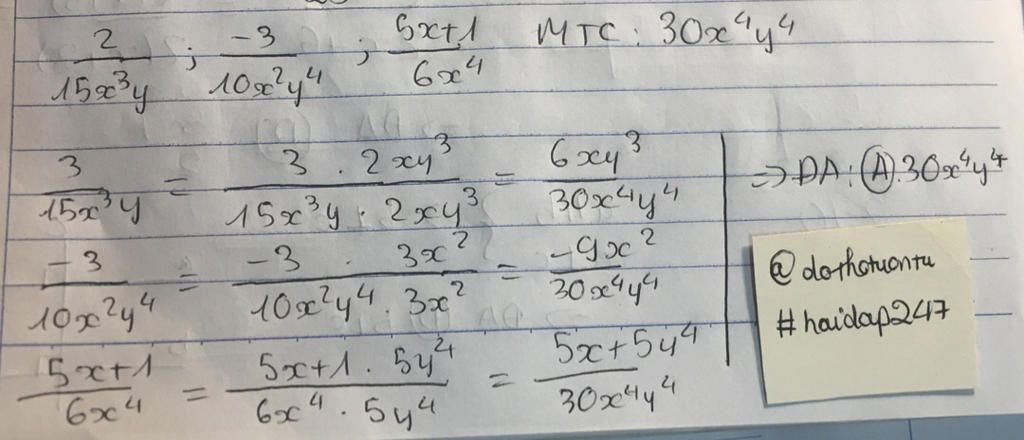 2/15x³y ; -3/10x²y⁴ ; 5x+1/6x⁴ MTC: 30x⁴y⁴
3/15x³y = 3 . 2xy³/15x³y . 2xy³ = 6xy³/30x⁴y⁴
-3/10x²y⁴ = -3 . 3x²/10x²y⁴ . 3x² = -9x²/30x⁴y⁴
5x+1/6x⁴ = 5x+1 . 5y⁴/6x⁴ . 5y⁴ = 5x+5y⁴/30x⁴y⁴
=> DA: A. 30x⁴y⁴
@dothotuontu
#haidap247